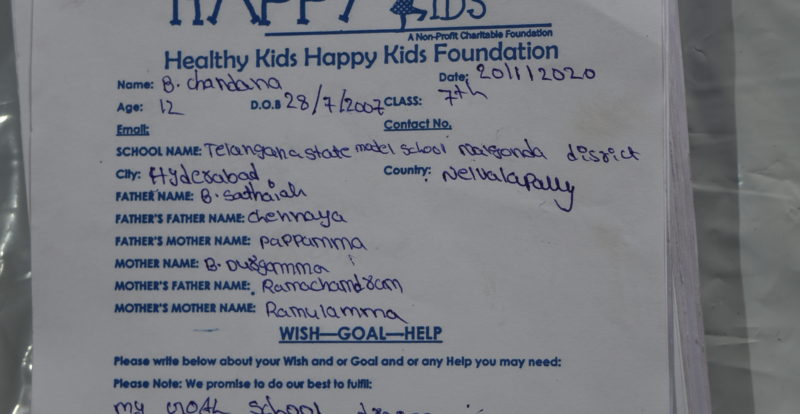 HAPPY KIDS
A Non-Profit Charitable Foundation
Healthy Kids Happy Kids Foundation
Name: B. chandana Date: 20/1/2020
Age: 12 D.O.B 28/7/2007 CLASS: 7th
Email: Contact No.
SCHOOL NAME: Telangana state model school nalgonda disrict
City: Hyderabad Country: Nelvalapally
FATHER NAME: B. Sathaiah
FATHER'S FATHER NAME: chennaya
FATHER'S MOTHER NAME: pappamma
MOTHER NAME: B. Durgamma
MOTHER'S FATHER NAME: Ramachandram
MOTHER'S MOTHER NAME: Ramulamma
WISH—GOAL—HELP
Please write below about your Wish and or Goal and or any Help you may need:
Please Note: We promise to do our best to fulfil:
my goal school